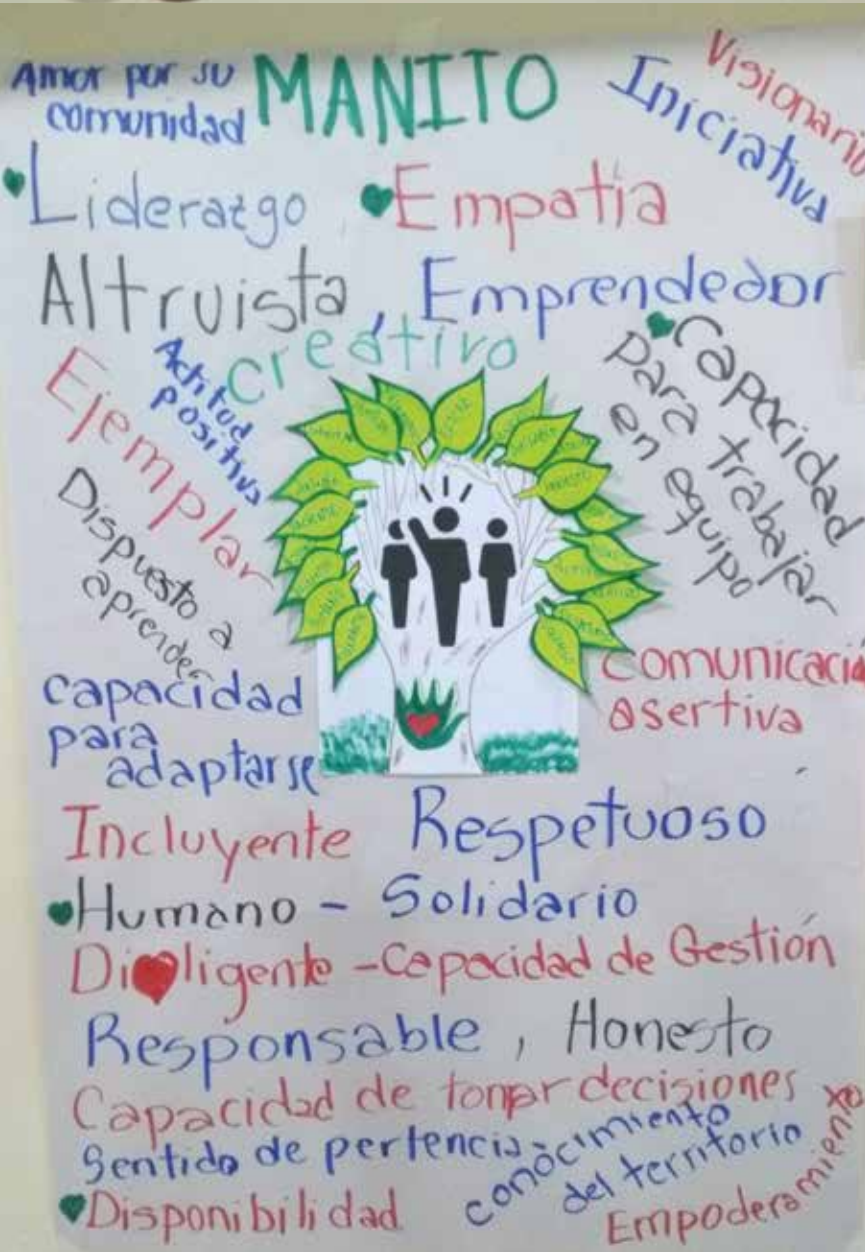 Amor por su
comunidad
MANITO
Visionario
Iniciativa
Lideratgo
Empatía
Altruista, Emprendedor
Creativo
Actitud
positiva
Ejemplar
Dispuesto a
aprender
Capacidad
para trabajar
en equipo
capacidad
para
adaptarse
comunicació
asertiva
Incluyente Respetuoso
Humano - Solidario
Diligente - Capacidad de Gestión
Responsable, Honesto
Capacidad de tomar decisiones
Sentido de pertencia
conocimiento
del territorio
Disponibilidad
Empoderamiento